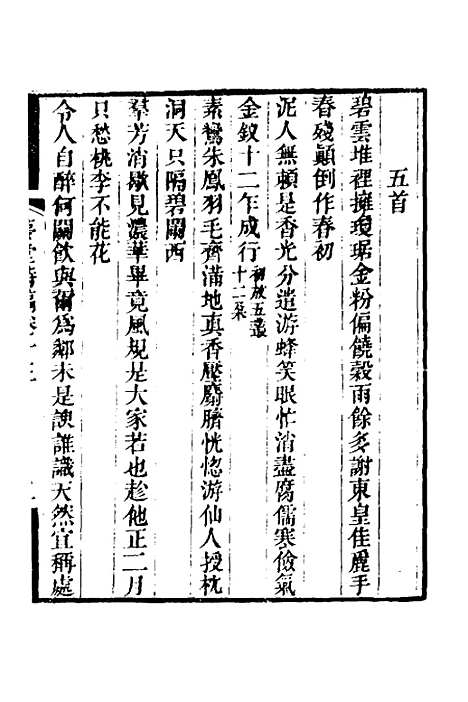 五首
碧雲堆裡擁瓊琚金粉偏饒穀雨餘多謝東皇佳麗手
春殘顛倒作春初
泥人無賴是香光分遣游蜂笑眼忙消盡腐儒寒儉氣
金釵十二乍成行初放五叢十二朵
素鸞朱鳳羽毛齊滿地真香壓麝臍恍惚游仙人授枕
洞天只隔碧闌西
羣芳消歇見濃華畢竟風規是大家若也趁他正二月
只愁桃李不能花
令人自醉何關飲與爾為鄰未是諛誰識天然宜稱處